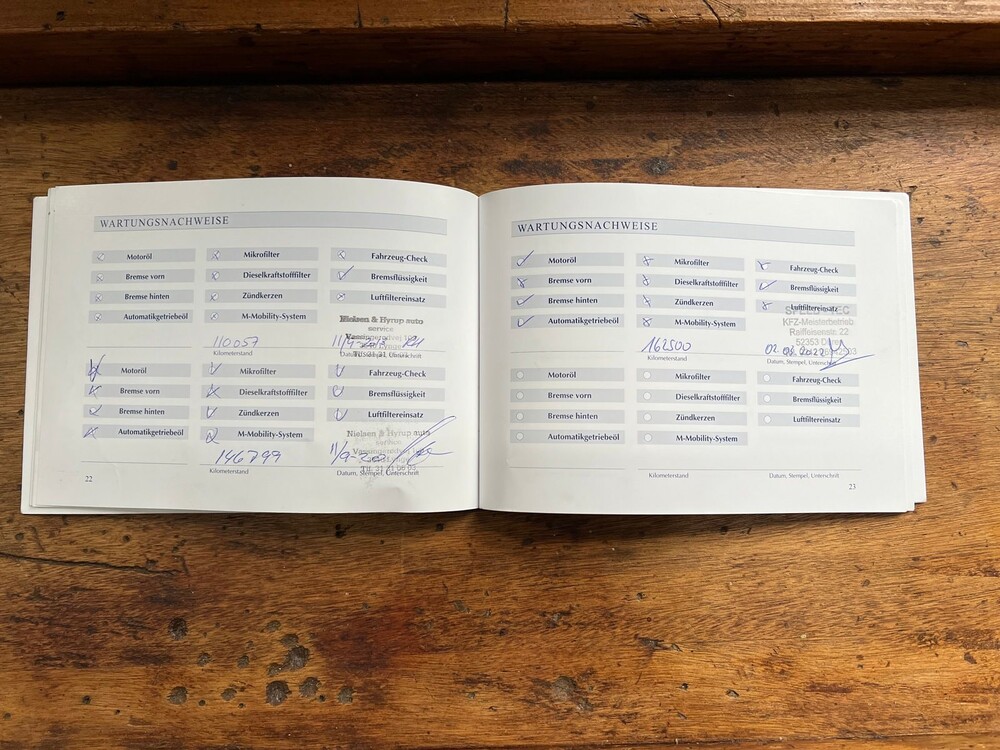 WARTUNGSNACHWEISE
Motoröl Mikrofilter Fahrzeug-Check
Bremse vorn Dieselkraftstofffilter Bremsflüssigkeit
Bremse hinten Zündkerzen Luftfiltereinsatz
Automatikgetriebeöl M-Mobility-System
Nielsen & Hyrup auto
service
110057
Kilometerstand Datum, Stempel, Unterschrift
Motoröl Mikrofilter Fahrzeug-Check
Bremse vorn Dieselkraftstofffilter Bremsflüssigkeit
Bremse hinten Zündkerzen Luftfiltereinsatz
Automatikgetriebeöl M-Mobility-System
Nielsen & Hyrup auto
service
146799
Kilometerstand Datum, Stempel, Unterschrift
22
WARTUNGSNACHWEISE
Motoröl Mikrofilter Fahrzeug-Check
Bremse vorn Dieselkraftstofffilter Bremsflüssigkeit
Bremse hinten Zündkerzen Luftfiltereinsatz
Automatikgetriebeöl M-Mobility-System
KFZ-Meisterbetrieb
Raiffeisenstr. 22
52353 Düren
162500
Kilometerstand Datum, Stempel, Unterschrift
Motoröl Mikrofilter Fahrzeug-Check
Bremse vorn Dieselkraftstofffilter Bremsflüssigkeit
Bremse hinten Zündkerzen Luftfiltereinsatz
Automatikgetriebeöl M-Mobility-System
Kilometerstand Datum, Stempel, Unterschrift
23